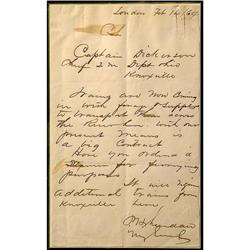 London Feb 14/64
Captain Dickerson
Dept Ohio
Knoxville
Waring are now Coming
in with forage & Supplies
to transport them across
the River here with our
present Means is
a big Contract
Have you Ordered a
Steamer for ferrying
purposes
It will require
additional trains from
Knoxville here
P H Sheridan